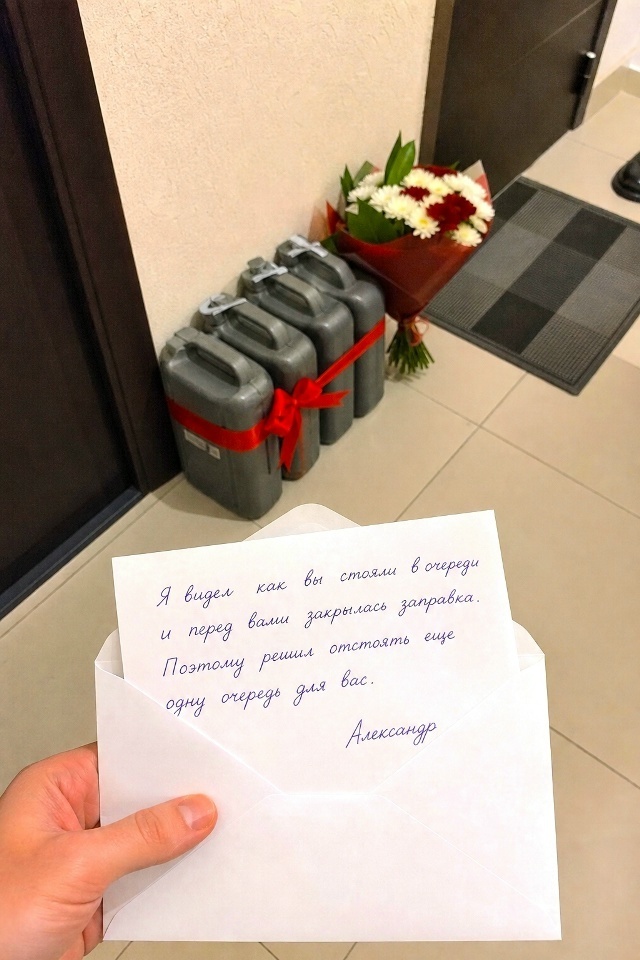 Я видел как вы стояли в очереди
и перед вами закрылась заправка.
Поэтому решил отстоять еще
одну очередь для вас.
Александр